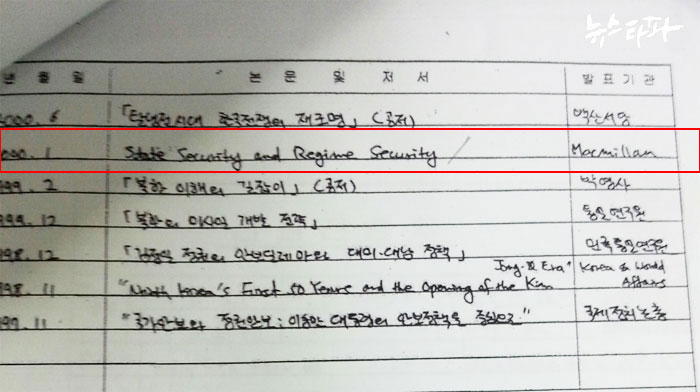 뉴스타파
년 월 일 논 문 및 저 서 발 표 기 관
000. 6 「탈냉전시대 한국전쟁의 재조명」 (공저) 백산서당
000. 1 State Security and Regime Security Macmillan
999. 2 「북한 이해의 길잡이」 (공저) 박영사
999. 12 「북한의 미사일 개발 전략」 통일연구원
998. 12 「김정일 정권의 안보딜레마와 대미·대남 정책」 민족통일연구원
998. 11 "North Korea's First 50 Years and the Opening of the Kim Jong-Il Era" Korea & World Affairs
997. 11 "국가안보와 정권안보: 이승만 대통령의 안보정책을 중심으로" 국제정치논총